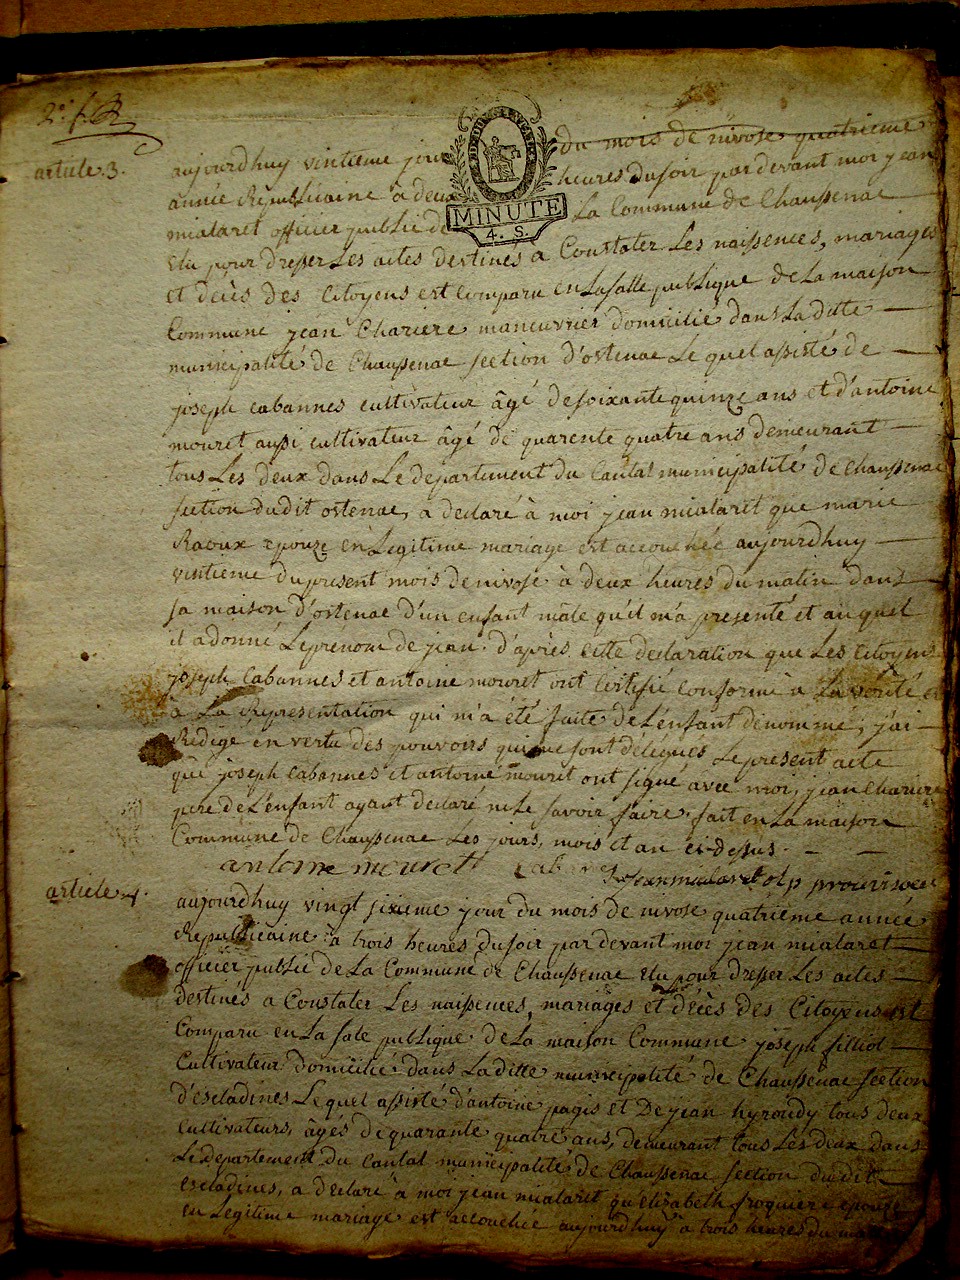 2e. f. R
MINUTE
4. S.
article 3.
aujourdhuy vintieme jour du mois de nivose quatrieme
année Republicaine à deux heures du soir par devant moi jean
mialaret officier public de La Commune de Chaussenac
elu pour dresser Les actes destinés a Constater Les naissences, mariages
et décès des Citoyens est comparu en La salle publique de La maison
Commune jean Chariere maneuvrier domicilié dans La ditte
municipalité de Chaussenac section d'ostenac Le quel assisté de
joseph cabannes cultivateur âgé de soixante quinze ans et d'antoine
mouret aussi cultivateur âgé de quarente quatre ans demeurant
tous Les deux dans Le departement du Cantal municipalité de Chaussenac
section dudit ostenac, a declaré à moi jean mialaret que marie
Raoux epouze en Legitime mariage est accouchée aujourdhuy
vintieme du present mois de nivose à deux heures du matin dans
sa maison d'ostenac d'un enfant mâle qu'il m'a presenté et au quel
il a donné Le prenom de jean. d'après cette declaration que Les Citoyens
joseph Cabannes et antoine mouret ont Certifié conforme à La vérité et
a La Representation qui m'a été faite de L'enfant dénommé, j'ai
Redigé en vertu des pouvoirs qui me sont délégués Le present acte
que joseph cabannes et antoine mouret ont signé avec moi, jean Chariere
pere de L'enfant ayant declaré ne Le savoir faire. fait en La maison
Commune de Chaussenac Les jours, mois et an ci-dessus.
antoine mouret Cabanes jean mialaret
article 4.
aujourdhuy vingt sixieme jour du mois de nivose quatrieme année
Republicaine à trois heures du soir par devant moi jean mialaret
officier public de La Commune de Chaussenac elu pour dresser Les actes
destinés a Constater Les naissences, mariages et décès des Citoyens est
Comparu en La sale publique de La maison Commune joseph filliol
Cultivateur domicilié dans La ditte municipalité de Chaussenac section
d'escladines Le quel assisté d'antoine pagis et De jean hyroudy tous deux
cultivateurs, âgés de quarante quatre ans, demeurant tous Les deux dans
Le departement du Cantal municipalité de Chaussenac section du dit
escladines, a declaré à moi jean mialaret qu'elizabeth froquiere epouse
en Legitime mariage est accouchée aujourdhuy à trois heures du